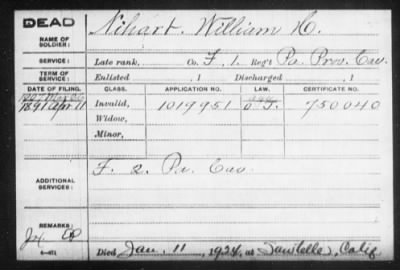 DEAD
NAME OF SOLDIER: Nihart, William H.
SERVICE: Late rank, Co. F, 1. Reg't Pa. Prov. Cav.
TERM OF SERVICE: Enlisted , 1 Discharged , 1
DATE OF FILING. CLASS. APPLICATION NO. LAW. CERTIFICATE NO.
1891 Apr 11 Invalid, 1019951 750040
Widow,
Minor,
ADDITIONAL SERVICES: F. 2. Pa. Cav.
REMARKS:
6-471 Died Jan. 11, 1924, at Sawtelle, Calif